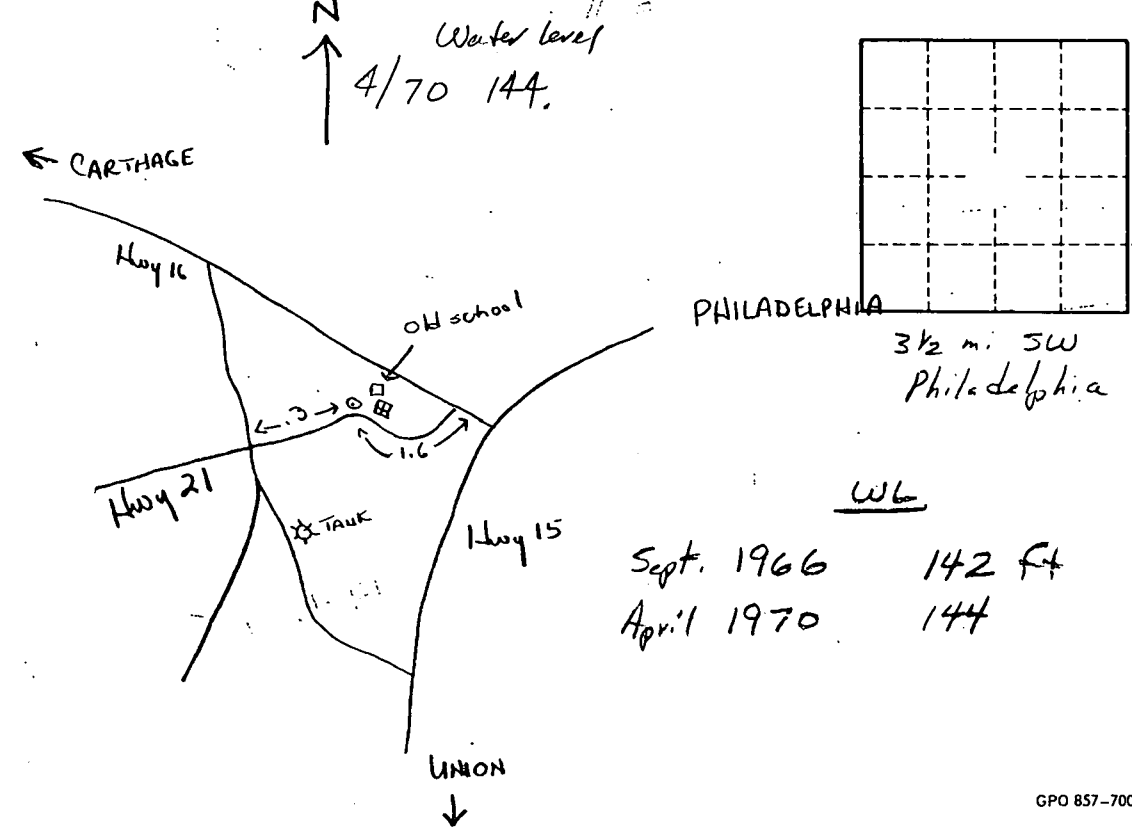 N
Water level
4/70 144.
← CARTHAGE
Hwy 16
Old school
PHILADELPHIA
3 1/2 mi SW
Philadelphia
.3
1.6
Hwy 21
TANK
Hwy 15
WL
Sept. 1966 142 ft
April 1970 144
UNION
GPO 857-700